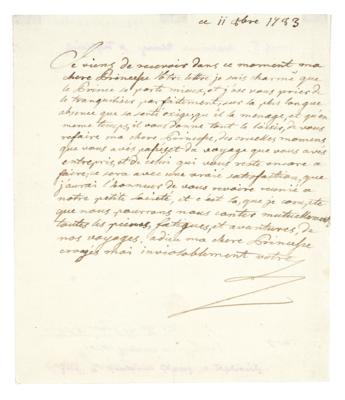 ce 11 8bre 1783
Je viens de recevoir dans ce moment ma
chere Princesse votre lettre je suis charmé que
le Prince se porte mieux, et j'ose vous prier de
tranquiliser parfaitement, sur la plus longue
absence que sa santé exige, qu'il la menage, et qu'en
meme tems, il vous donne tout le loisir, de vous
refaire ma chere Princesse, des
que vous avés du voyage que vous avés
entrepris, et de celui qui vous reste encore a
faire, ce sera avec une vraie satisfaction, que
j'aurai l'honneur de vous revoire reunie a
notre petite societé, et c'est la, que je
que nous pourrons nous conter mutuelement
toutes les peines, fatigues, et avantures, de
nos voyages, adieu ma chere Princesse
croyés moi inviolablement votre